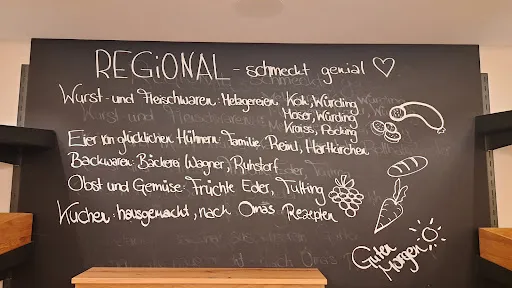 REGIONAL - schmeckt genial
Wurst- und Fleischwaren: Metzgereien Kok, Würding
Hoser, Würding
Kraiss, Pocking
Eier von glücklichen Hühnern: Familie Reindl, Hartkirchen
Backwaren: Bäckerei Wagner, Ruhstorf
Obst und Gemüse: Früchte Eder, Tutting
Kuchen: hausgemacht, nach Omas Rezepten
Guten
Morgen